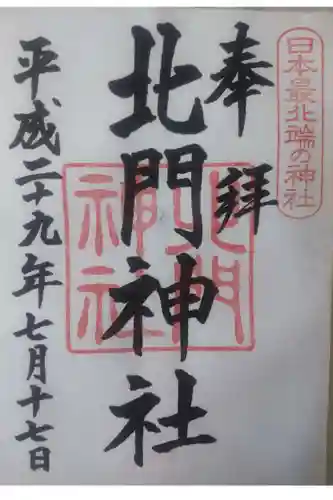 日本最北端の神社
奉拝
北門神社
北門神社
平成二十九年七月十七日